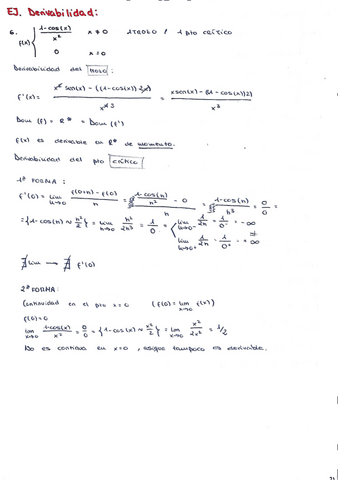 EJ. Derivabilidad:
6. f(x) { 1-cos(x) / x² x ≠ 0 1 TROZO / 1 pto crítico
0 x = 0
Derivabilidad del TROZO:
f'(x) = x² sen(x) - ((1-cos(x)) 2x) / x⁴ 3 = x sen(x) - (1-cos(x))2) / x³
Dom (f) = R* = Dom (f')
f(x) es derivable en R* de momento.
Derivabilidad del pto crítico
1ª FORMA:
f'(0) = lim h→0 f(0+h) - f(0) / h = 1-cos(h) / h² - 0 / h = 1-cos(h) / h³ = 0/0 =
= {1-cos(h) ≈ h²/2} = lim h→0 h²/2h³ = 1/0 = lim h→0- 1/2h = 1/0- = -∞
≠
lim h→0+ 1/2h = 1/0+ = +∞
∄ lim → ∄ f'(0)
2ª FORMA:
Continuidad en el pto x=0 (f(0) = lim x→0 f(x))
f(0)=0
lim x→0 1-cos(x) / x² = 0/0 = {1-cos(x) ≈ x²/2} = lim x→0 x²/2x² = 1/2
No es continua en x=0, asique tampoco es derivable.